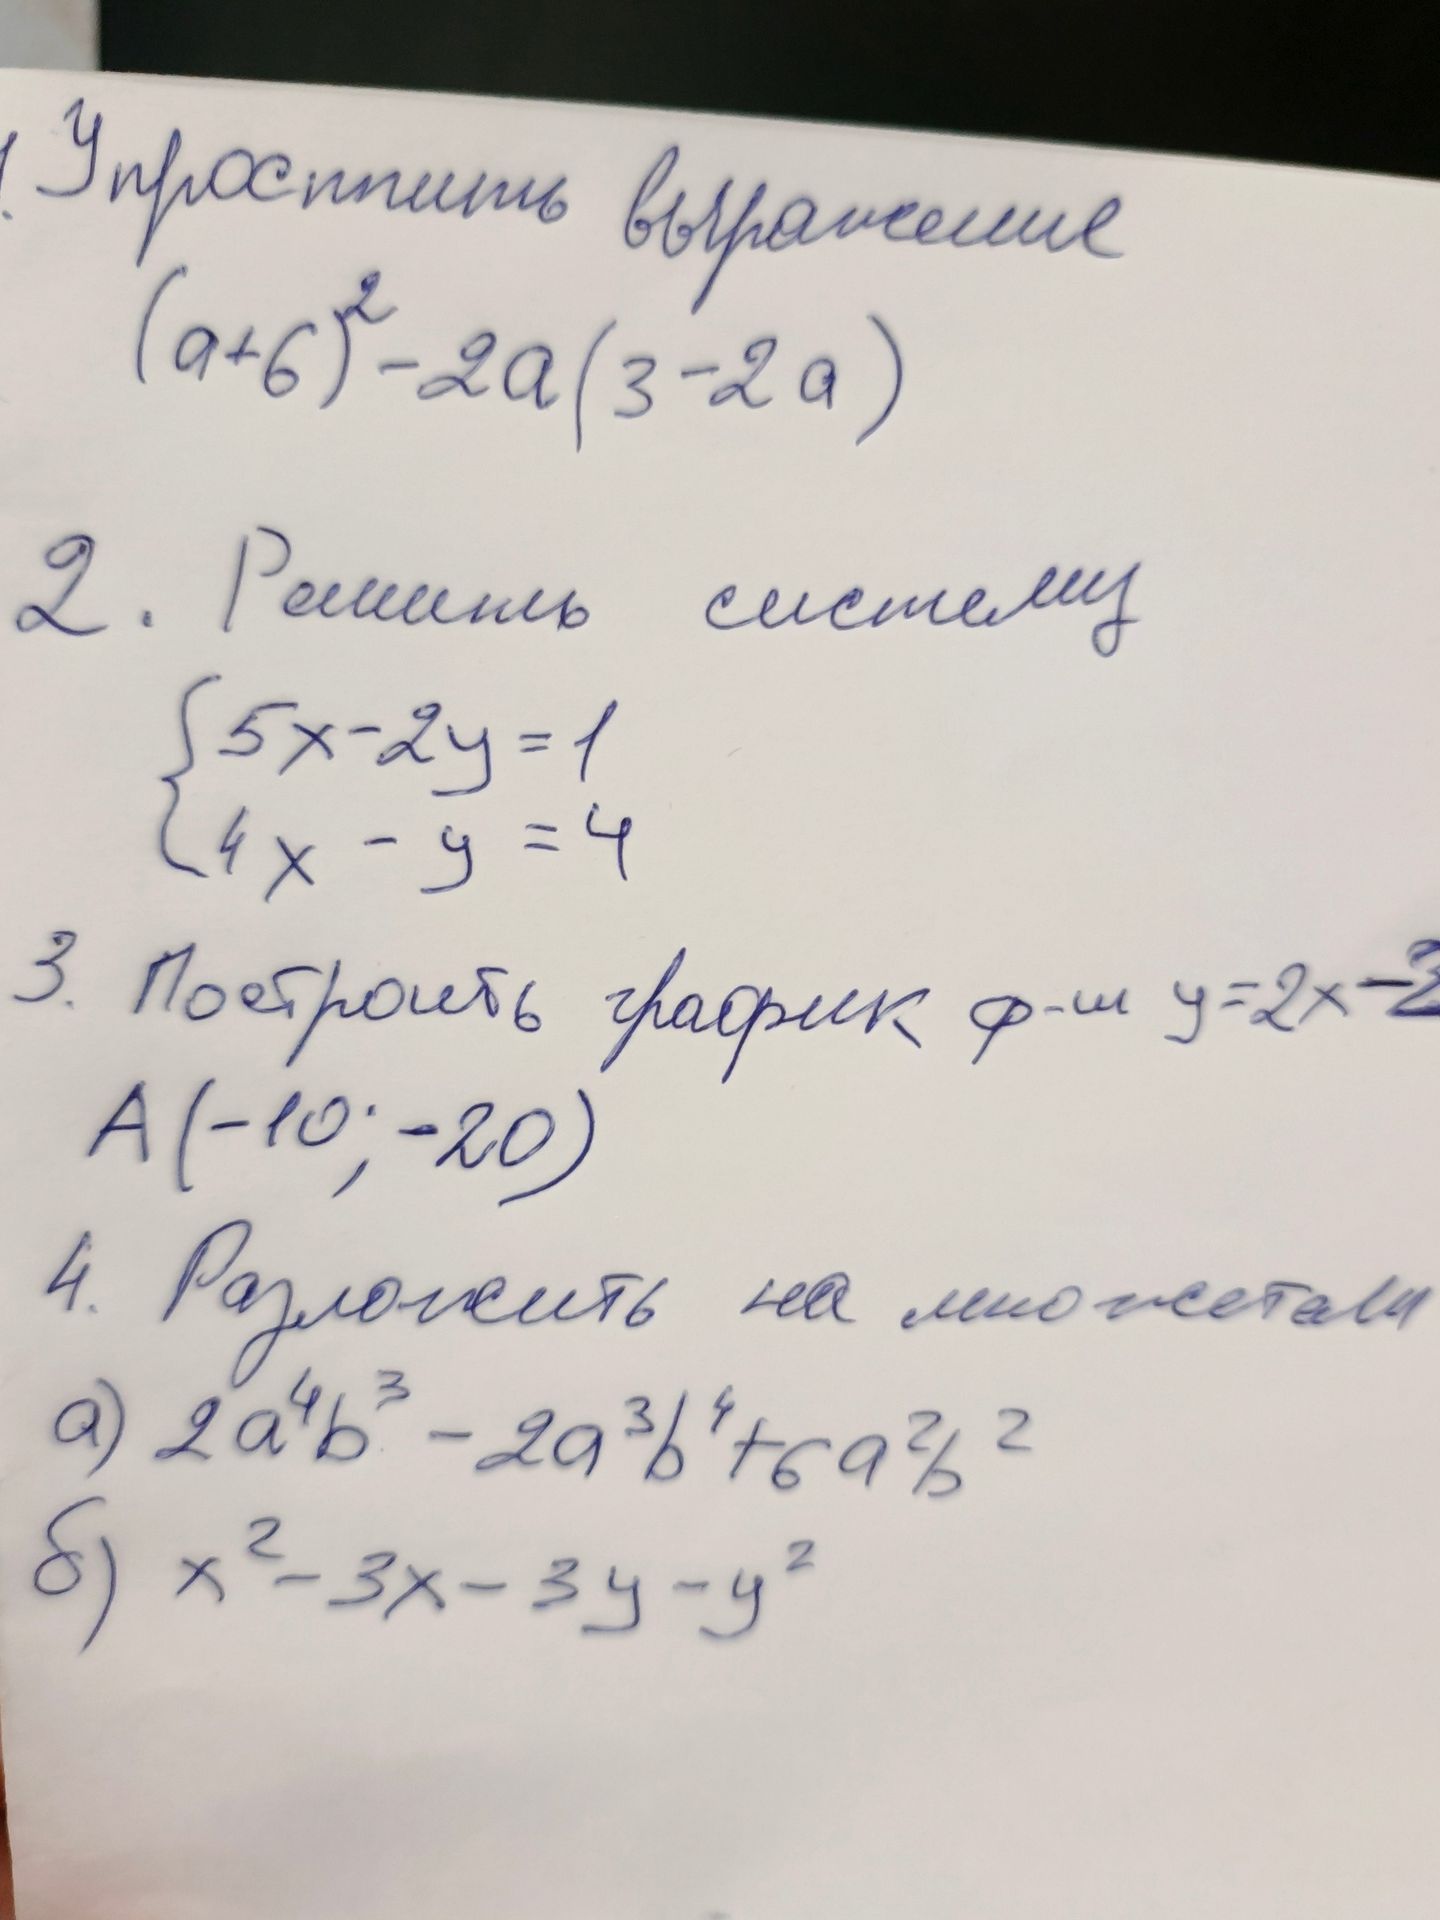 1. Упростить выражение
(a+6)²-2a(3-2a)
2. Решить систему
{5x-2y=1
{4x-y=4
3. Построить график ф-ии y=2x-2
A(-10;-20)
4. Разложить на
а) 2a⁴b³-2a³b⁴+6a²b²
б) x²-3x-3y-y²